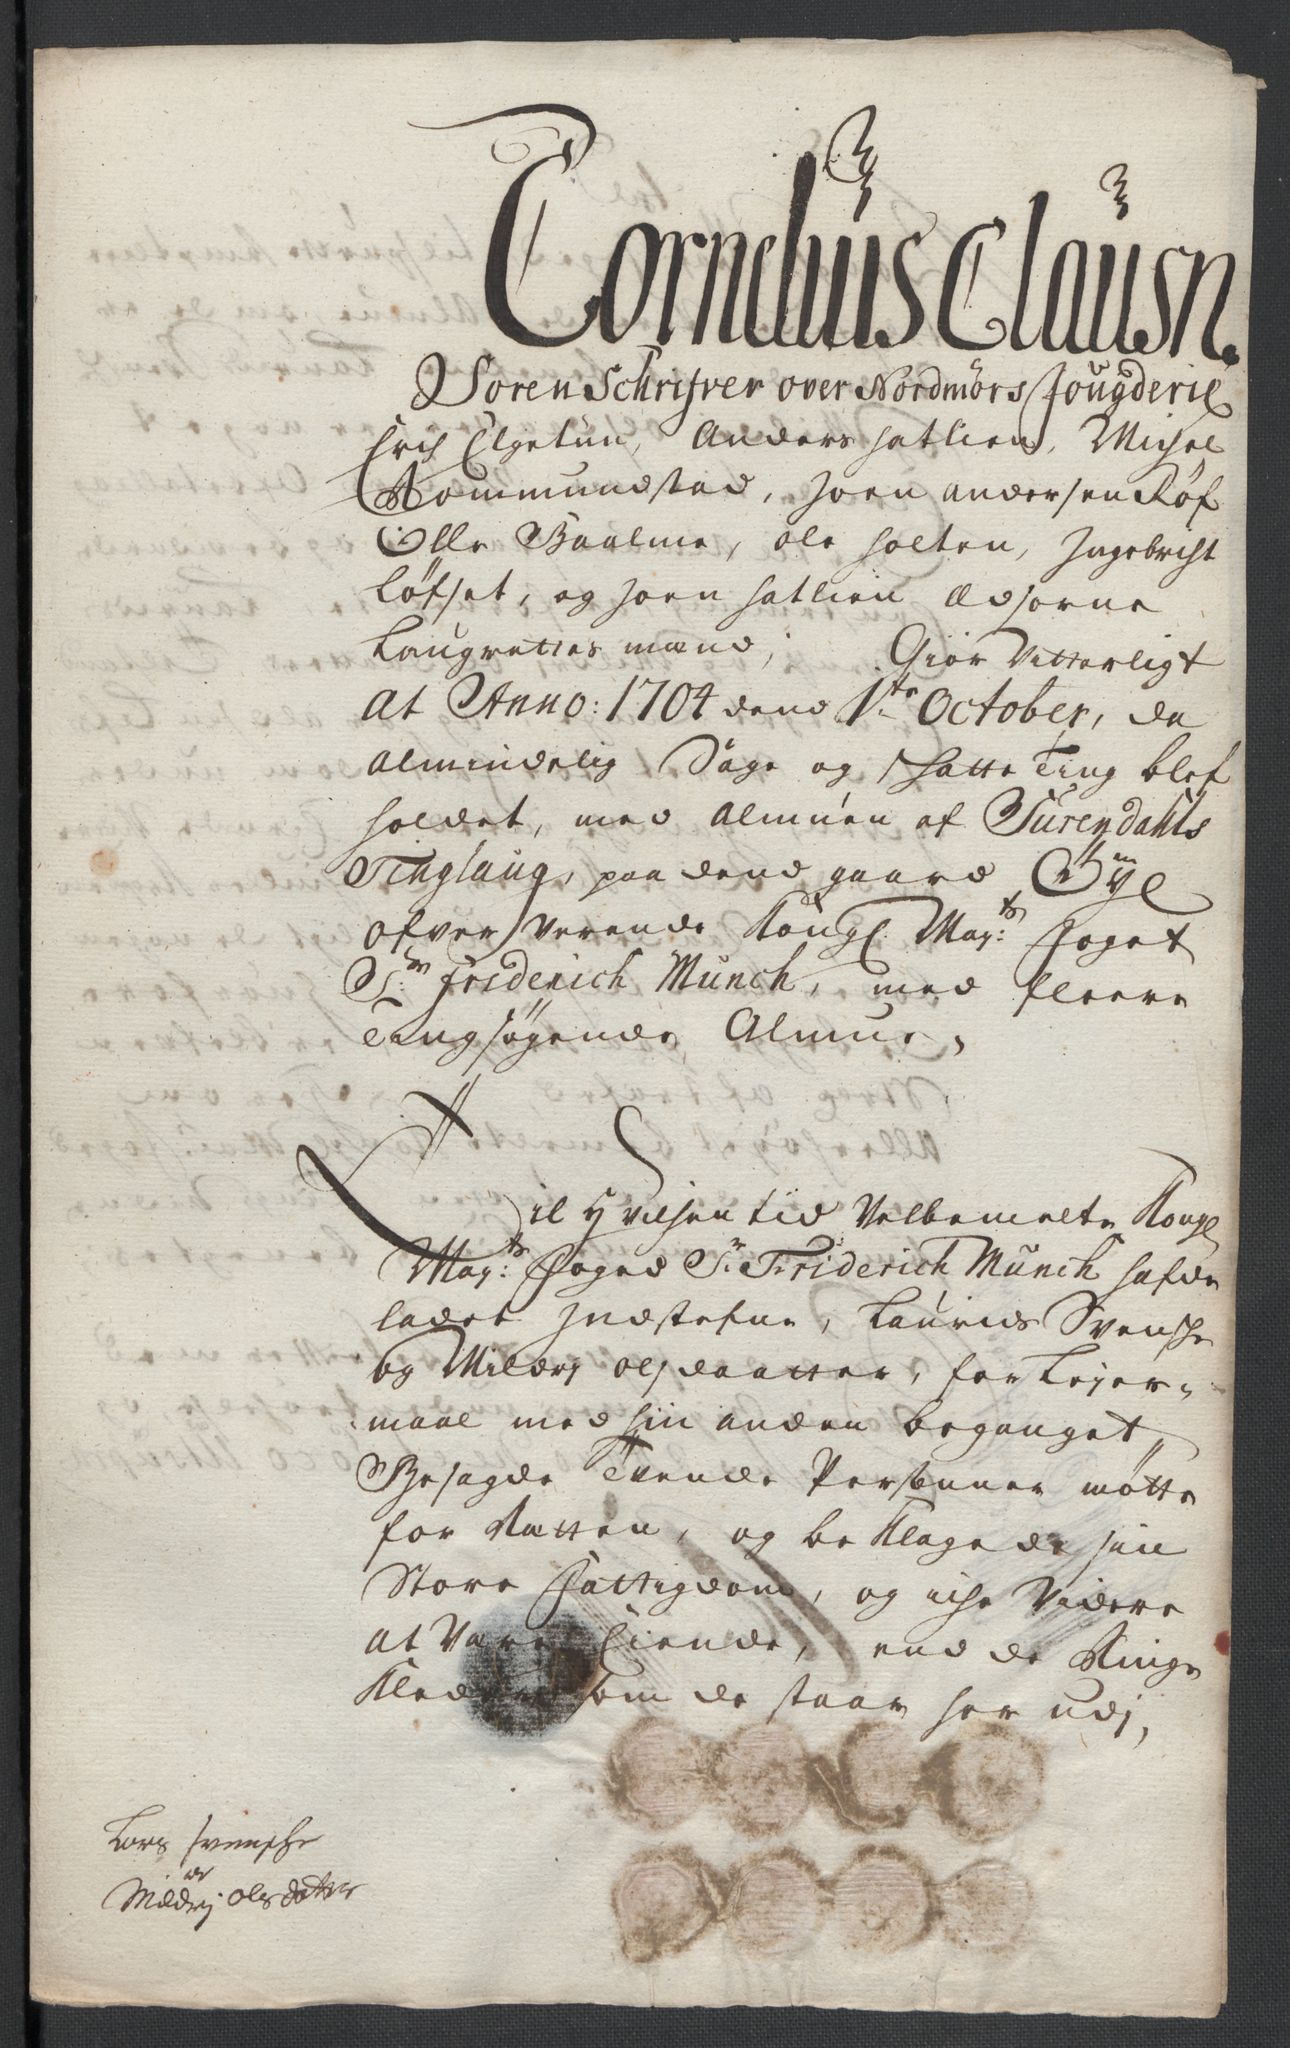 Cornelius Clausn.
Soren Schrifver over Nordmörs Fougderie
Erich Elgetun, Anders Hatlien, Michel
Rommundstad, Joen Andersen Røf
Olle Baalme, ole Holten, Ingebricht
Løfset, og Joen Hatlien Edsorne
Laugrettes mænd, Giör Vitterligt
at Anno: 1704 dend 1te October, da
almindelig Sage og schatte Ting blef
holdet, med Almuen af Surendahls
Tinglaug, paa dend gaard Øye
ofververende Kongl. May:ts Foget
Sr: Friderich Munch, med fleere
Tingsøgende Almue,
Til hvilchen tid Velbemelte Kongl
May:ts Foged Sr: Friderich Munch hafde
ladet Indstefne, Laurids Svensche
og Mildrj olsdaatter, for Lejer-
maal med hin anden beganget,
Besagde Tvende Personner mötte
for Retten, og beklagede sin
Store Fattigdom, og iche Videre
at Være Eiende, end de Ringe
Kleder som de staar her udj,
Lars svensche
og
Mildrj olsdatter